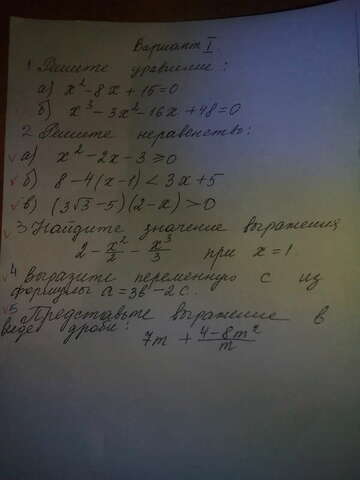 Вариант I.
1 Решите уравнение:
а) x² - 8x + 15 = 0
б) x³ - 3x² - 16x + 48 = 0
2. Решите неравенство:
а) x² - 2x - 3 ≥ 0
б) 8 - 4(x - 1) < 3x + 5
в) (3√3 - 5)(2 - x) > 0
3 Найдите значение выражения
2 - x²/2 - x³/3 при x = 1.
4 Выразите переменную с из
формулы a = 3b - 2c.
5 Представьте выражение в
виде дроби:
7m + (4 - 8m²)/m